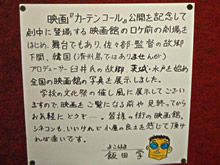 映画『カーテンコール』公開を記念して
劇中に登場する映画館のロケ前の劇場を
はじめ、舞台でもあり、佐々部監督の故郷
下関、韓国(済州島ではありませんが)
プロデューサー臼井氏の故郷 茨城・水戸を始め
全国の映画館の写真を展示しました。
学校の文化祭の催し風に展示してございま
すので、映画をご覧になる前や見終ってから
お気軽にどうぞ…。皆様の街の映画館、
シネコンも、いいけれど小屋の良さを感じて頂け
れば幸いです。
飯田 学